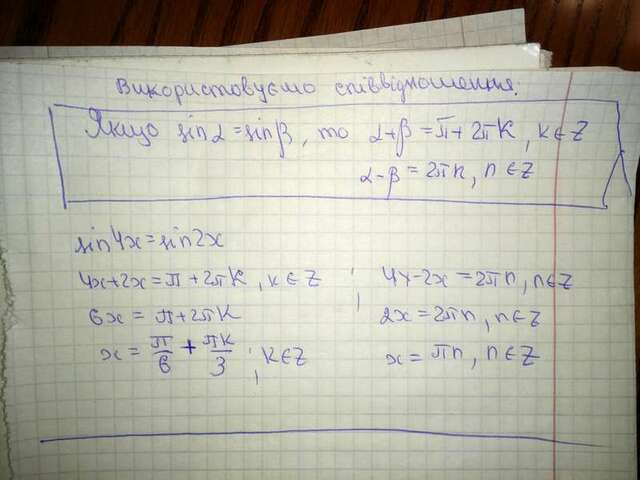 Використовуємо співвідношення.
Якщо sinα = sinβ, то α+β = π + 2πk, k∈Z
α-β = 2πn, n∈Z
sin4x = sin2x
4x+2x = π + 2πk, k∈Z ; 4x-2x = 2πn, n∈Z
6x = π + 2πk ; 2x = 2πn, n∈Z
x = π/6 + πk/3 ; k∈Z x = πn, n∈Z